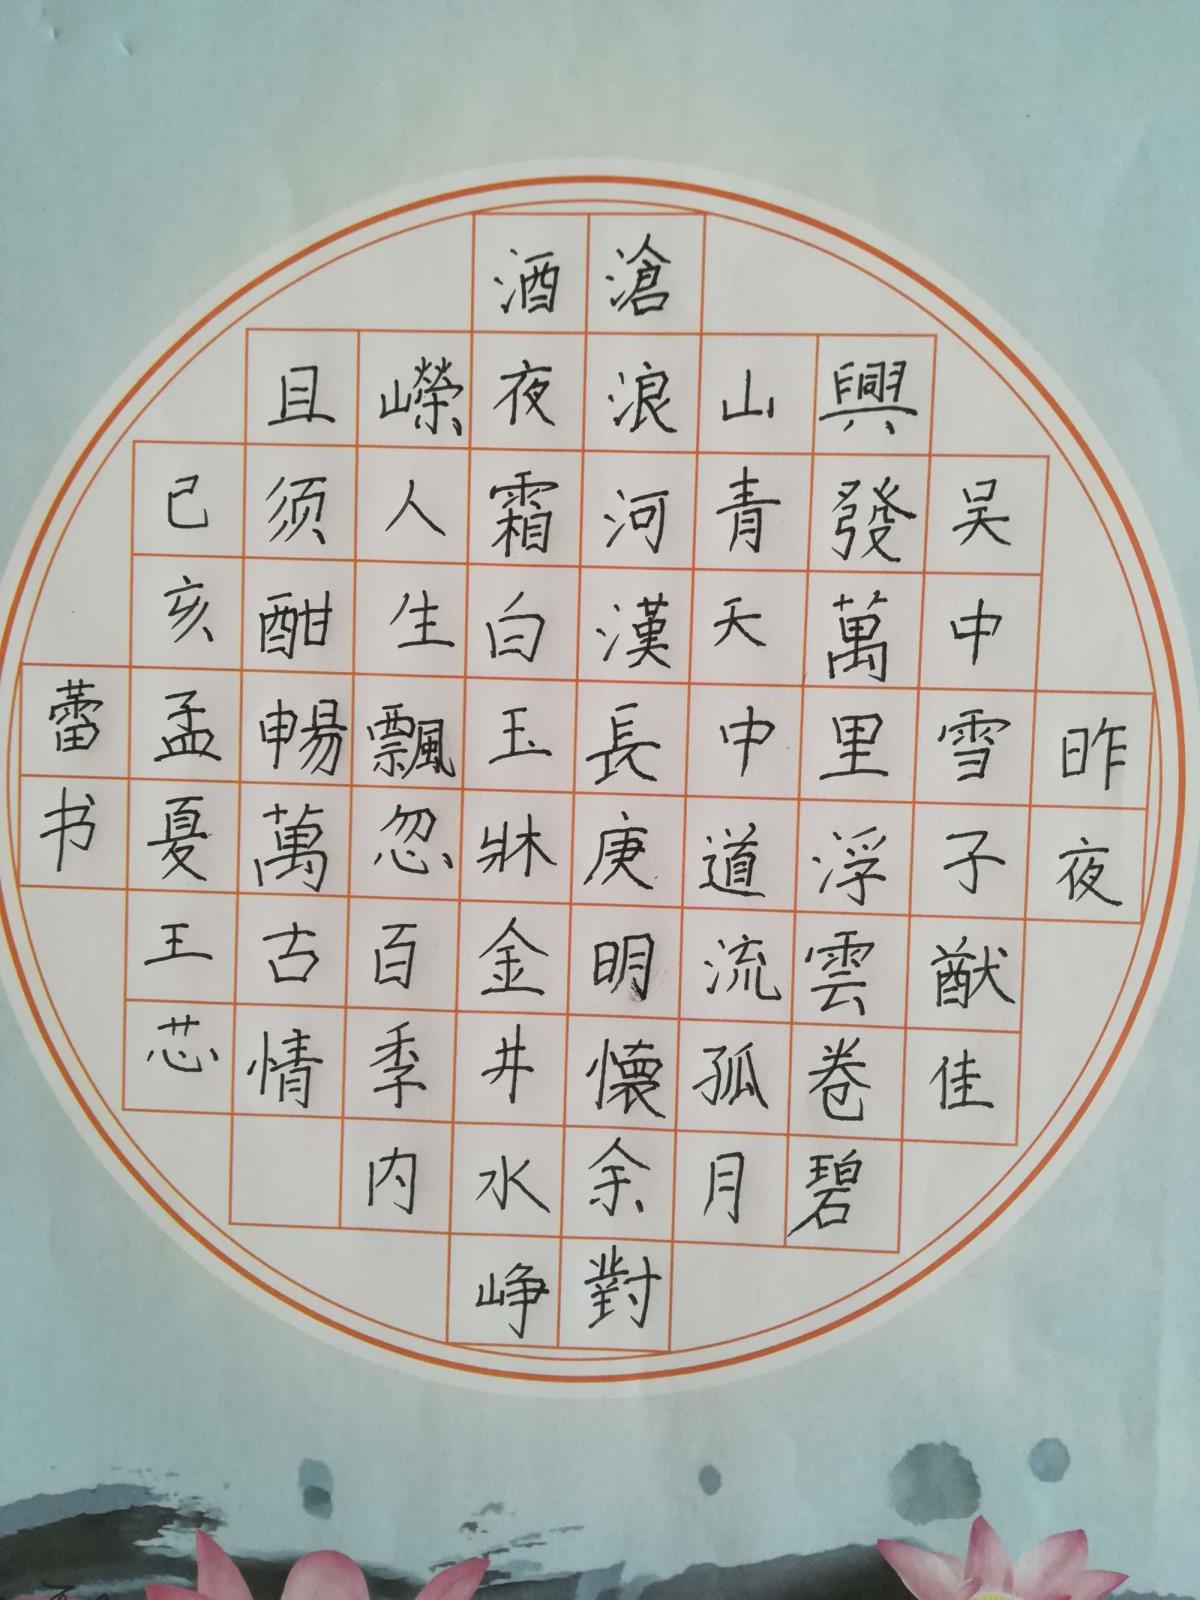 昨夜
吴中雪子猷佳
興發萬里浮雲卷碧
山青天中道流孤月
滄浪河漢長庚明懷余對
酒夜霜白玉牀金井水峥
嶸人生飄忽百季内
且须酣暢萬古情
己亥孟夏王芯
蕾书